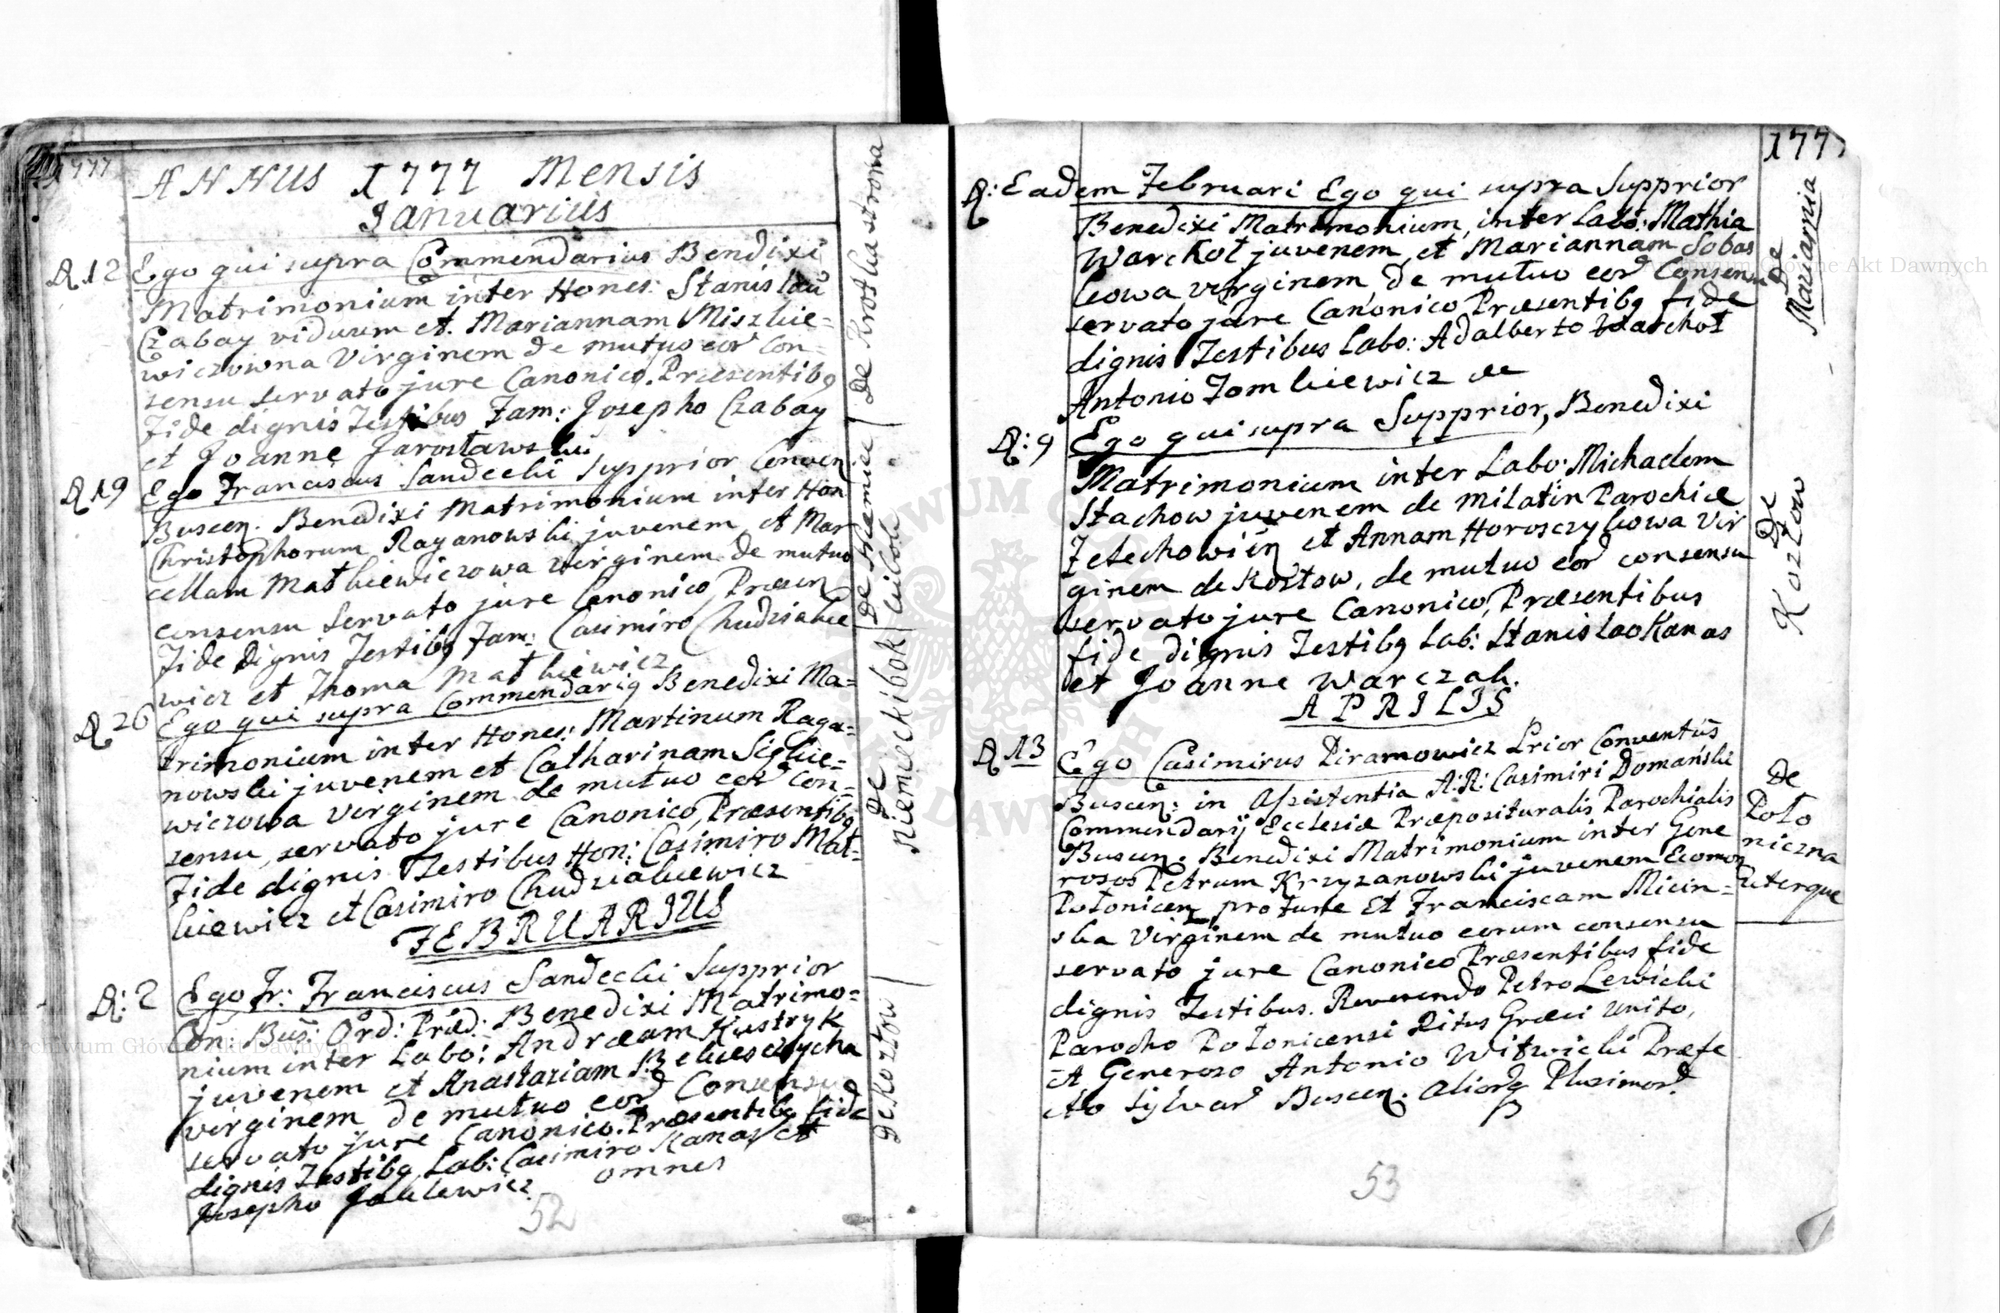 1777
ANNUS 1777 Mensis
Januarius
D. 12 Ego qui supra Commendarius Bendixi
Matrimonium inter Hones: Stanislaũ
Czabay viduum et Mariannam Miszkie=
wiczowna Virginem de mutuo eor Con=
sensu servato jure Canonico. Præsentibg
Fide dignis Testibus Fam: Josepho Czabay
et Joanne Jarosławski
D. 19 Ego Franciscus Sandecki Supprior Conven:
Buscen. Benedixi Matrimonium inter Hon
Christophorum Raganowski juvenem et Mar
cellam Matkiewiczowa virginem de mutuo
consensu servato jure Canonico, Præsen
Fide Dignis Testibg Fam: Casimiro Chudziakie
wicz et Thoma Matkiewicz
D. 26 Ego qui supra Commendarig Benedixi Ma=
trimonium inter Hones: Martinum Raga=
nowski juvenem et Catharinam Sigkie=
wiczowa virginem de mutuo eor Con=
sensu, servato jure Canonico, Præsentibg
Fide dignis Testibus Hon: Casimiro Mat-
kiewicz et Casimiro Chudziakiewicz
FEBRUARIUS
D: 2 Ego Fr: Franciscus Sandecki Supprior
Con: Bus: Ord: Præd: Benedixi Matrimo=
nium inter Labo: Andræam Kustryk
juvenem et Anastasiam
virginem de mutuo eor Consensu
servato jure Canonico. Præsentibg fide
dignis Testibg Lab: Casimiro Kanas et
Josepho omnes
52
De Krothastrona
De Niemiec
De
Niemieckibok
De Kozłow
1777
D: Eadem Februari Ego qui supra Supprior
Benedixi Matrimonium, inter Labo: Mathia
Warchoł juvenem, et Mariannam Sobas
kowa virginem de mutuo eor Consensu
servato jure Canonico Præsentibg fide
dignis Testibus Labo: Adalberto Warchoł
Antonio Tomkiewicz
D: 9 Ego qui supra Supprior, Benedixi
Matrimonium inter Labo: Michaelem
Stachow juvenem de Milatin Parochiæ
et Annam Horosczykowa Vir
ginem de Kozłow, de mutuo eor consensu
servato jure Canonico, Præsentibus
fide dignis Testibg Lab: Stanislao Kanas
et Joanne Warczak.
APRILIS
D. 13 Ego Casimirus Piramowicz Prior Conventûs
Buscen: in Assistentia A: R: Casimiri Domański
Commendarij Ecclesiæ Præpositurális Parochialis
Buscen. Benedixi Matrimonium inter Gene
rosos Petrum Krzyzanowski juvenem Econom
Połonicen pro tunc Et Franciscam Micin=
ska Virginem de mutuo eorum consensu
servato jure Canonico Præsentibus fide
dignis Testibus. Reverendo Petro Lewicki
Parocho Połonicensi Ritus Græci Unito,
et Generoso Antonio Witwicki Præfe
cto Sylvar Buscen. aliorq Plurimor
53
De
Maziarnia
De
Kozłow
De
Poło
niczna
Uterque
Archiwum Główne Akt Dawnych
Archiwum Główne Akt Dawnych